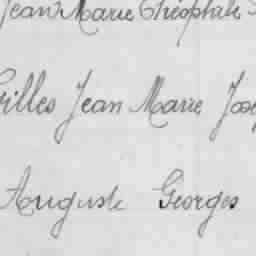 Jean Marie Théophile
Gilles Jean Marie
Auguste Georges